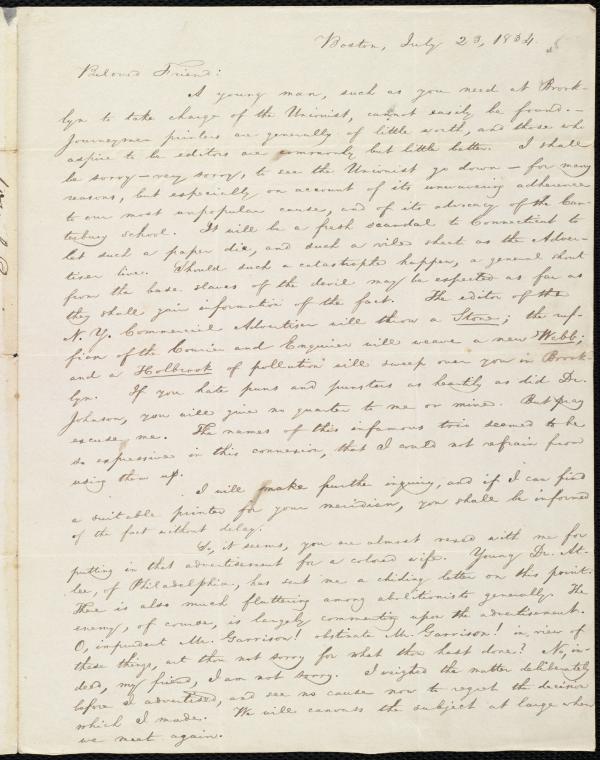 Boston, July 23, 1834.
Beloved Friend:
A young man, such as you need at Brook-
lyn to take charge of the Unionist, cannot easily be found.—
Journeymen printers are generally of little worth, and those who
aspire to be editors are commonly but little better. I shall
be sorry—very sorry, to see the Unionist go down—for many
reasons, but especially on account of its unwavering adherence
to our most unpopular cause, and of its advocacy of the Can-
terbury school. It will be a fresh scandal to Connecticut to
let such a paper die, and such a vile sheet as the Adver-
tiser live. Should such a catastrophe happen, a general shout
from the base slaves of the devil may be expected as far as
they shall gain information of the fact. The editor of the
N. Y. Commercial Advertiser will throw a Stone; the ruf-
fian of the Courier and Enquirer will weave a new Webb;
and a Holbrook of pollution will sweep over you in Brook-
lyn. If you hate puns and punsters as heartily as did Dr.
Johnson, you will give no quarter to me or mine. But pray
excuse me. The names of this infamous trio seemed to be
so expressive in this connexion, that I could not refrain from
using them up.
I will make further inquiry, and if I can find
a suitable printer for your meridian, you shall be informed
of the fact without delay.
So, it seems, you are almost vexed with me for
putting in that advertisement for a colored wife. Young Dr. At-
lee, of Philadelphia, has sent me a chiding letter on this point.
There is also much fluttering among abolitionists generally. The
enemy, of course, is largely commenting upon the advertisement.
O, imprudent Mr. Garrison! obstinate Mr. Garrison! in view of
these things, art thou not sorry for what thou hast done? No, in-
deed, my friend, I am not sorry. I weighed the matter deliberately
before I advertised, and see no cause now to regret the decision
which I made. We will canvass the subject at large when
we meet again.